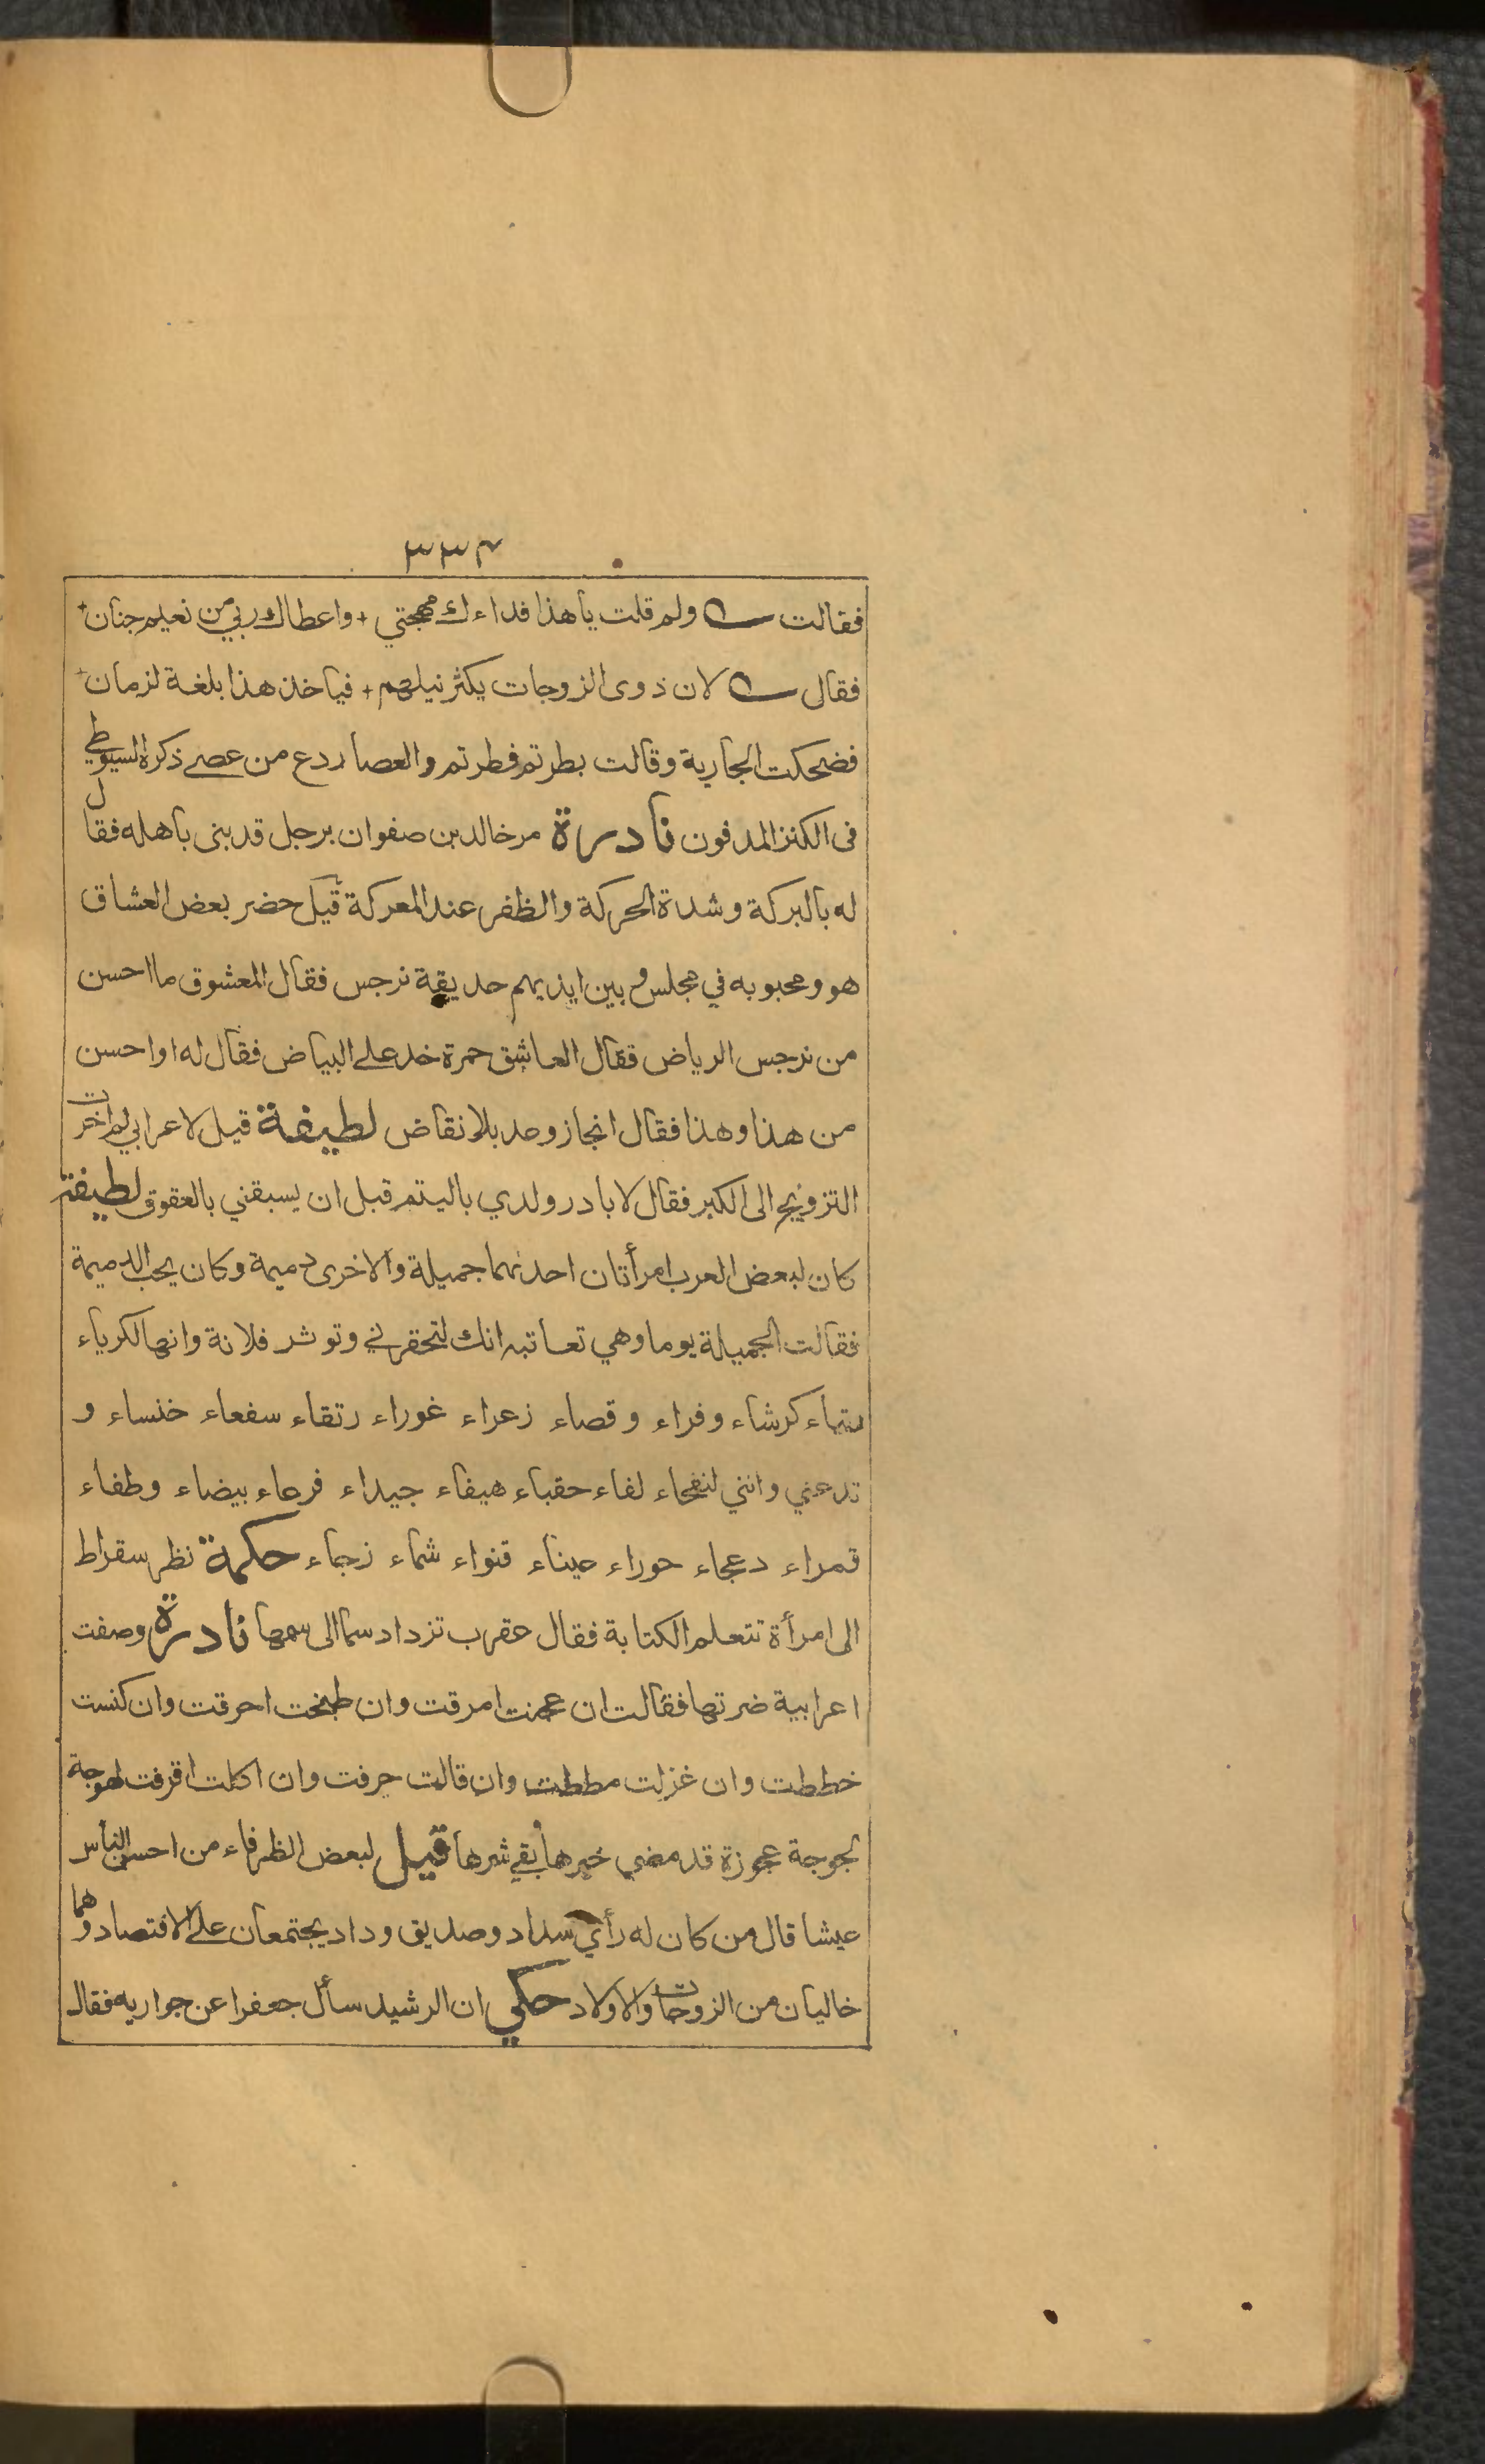 ٣٣٤
فقالت ولم قلت يا هذا فداءك مهجتي + واعطاك ربي من نعيم جنان +
فقال لان ذوى الزوجات يكثر نيلهم + فيا خذ هذا بلغة لزمان +
فضحكت الجارية وقالت بطرتم فطرتم والعصا ردع من عصے ذكره السيوطي
فى الكنز المدفون نادرة مر خالد بن صفوان برجل قد بنى باهله فقال
له بالبركة وشدة الحركة والظفر عند المعركة قيل حضر بعض العشاق
هو ومحبوبه في مجلس وبين ايديهم حديقة نرجس فقال المعشوق ما احسن
من نرجس الرياض فقال العاشق حمرة خد علے البياض فقال له او احسن
من هذا وهذا فقال انجاز وعد بلا نقاض لطيفة قيل لاعرابي لم اخرت
التزويج الى الكبر فقال لابادر ولدي باليتم قبل ان يسبقني بالعقوق لطيفة
كان لبعض العرب امرأتان احدٮهما جميلة والاخرى دميمة وكان يحب الدميمة
فقالت الجميلة يوما وهي تعاتبه انك لتحقرني وتوثر فلانة وانها لكرياء
كرشاء وفراء وقصاء زعراء غوراء رتقاء سفعاء خنساء و
تدعني وانني لنفجاء لفاء حقباء هيفاء جيداء فرعاء بيضاء وطفاء
قمراء دعجاء حوراء عيناء قنواء شماء زجاء حكمة نظر سقراط
الى امرأة تتعلم الكتابة فقال عقرب تزداد سما الى سمها نادرة وصفت
اعرابية ضرتها فقالت ان عجنت امرقت وان طبخت احرقت وان كنست
خططت وان غزلت مططت وان قالت حرفت وان اكلت اقرفت لهوجة
لجوجة عجوزة قد مضى خيرها وبقے شرها قيل لبعض الظرفاء من احسن الناس
عيشا قال من كان له رأي سداد وصديق وداد يجتمعان علے الاقتصاد وهما
خاليان من الزوجات والاولاد حكي ان الرشيد سأل جعفرا عن جواريه فقال